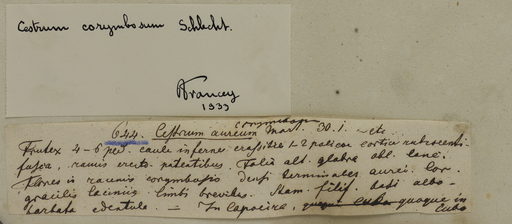 Cestrum corymbosum Schlecht.
Francey
1933
corymbosum
644. Cestrum aureum Mart. 30. 1. etc
Frutex 4-6 ped. caule inferne crassitie 1-2 pollicar cortice rubrescenti
fusca, ramis erecto patentibus. Folia alt. glabra obl. lanc.
Flores in racemis corymbosis densis terminales aurei. Cor.
gracilis laciniis limbi brevibus. Stam. filif. basi albo-
barbata edentula — In Capoeira, quoque in
Cubo